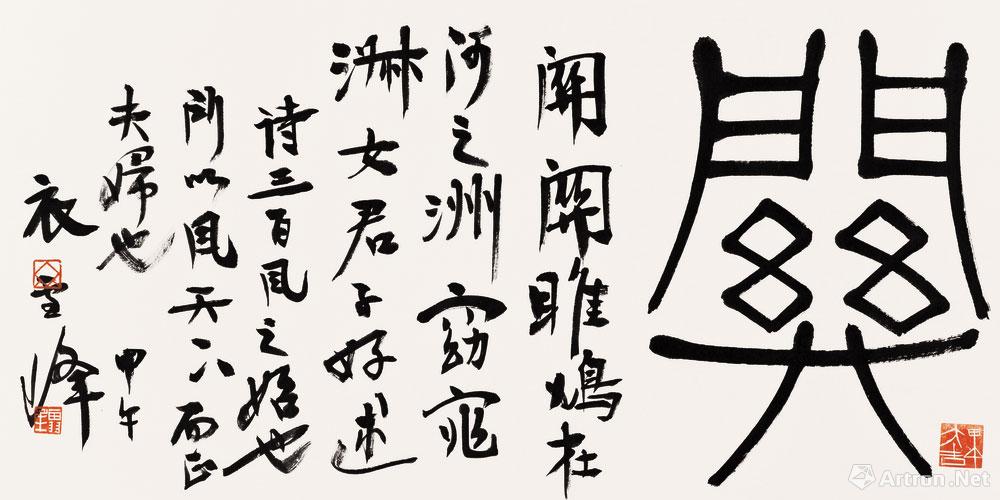 關
關關雎鳩在
河之洲窈窕
淑女君子好逑
诗三百风之始也
所以风天下而正
夫婦也 甲午
衣雪峰
Artron.Net